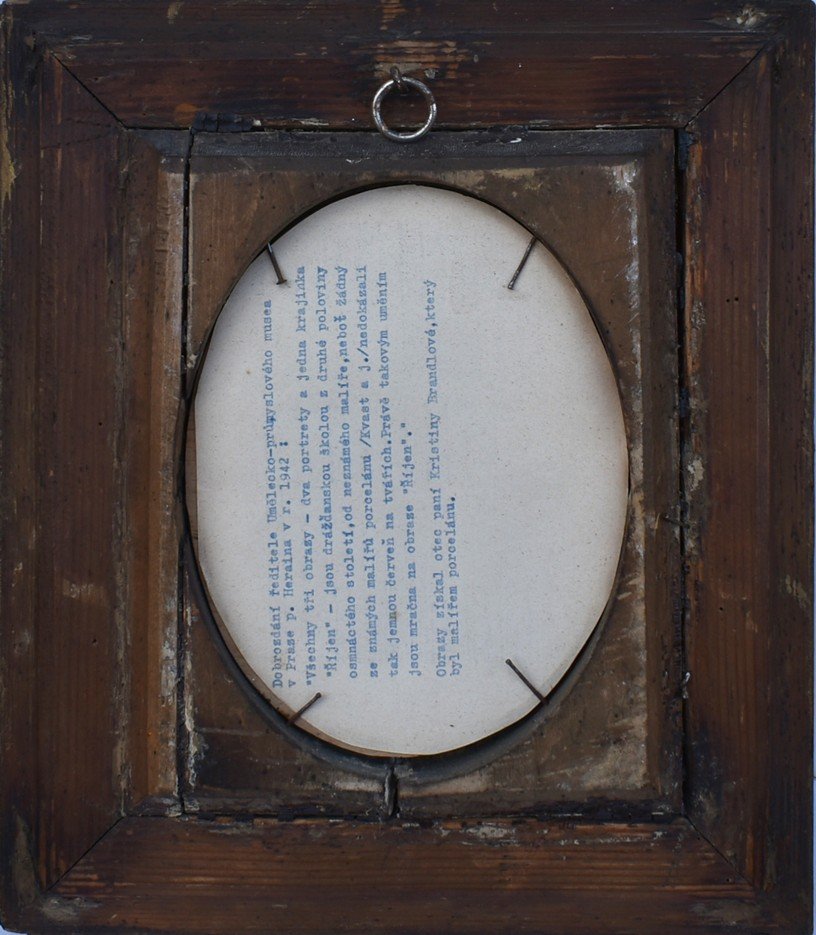 Dobrozdání ředitele Umělecko-průmyslového musea
v Praze p. Heraina v r. 1942 :
"Všechny tři obrazy - dva portrety a jedna krajinka
"Říjen" - jsou drážďanskou školou z druhé poloviny
osmnáctého století,od neznámého malíře,neboť žádný
ze známých malířů porcelánu /Kvast a j./nedokázali
tak jemnou červeň na tvářích.Právě takovým uměním
jsou mračna na obraze "Říjen"."
Obrazy získal otec paní Kristiny Brandlové,který
byl malířem porcelánu.